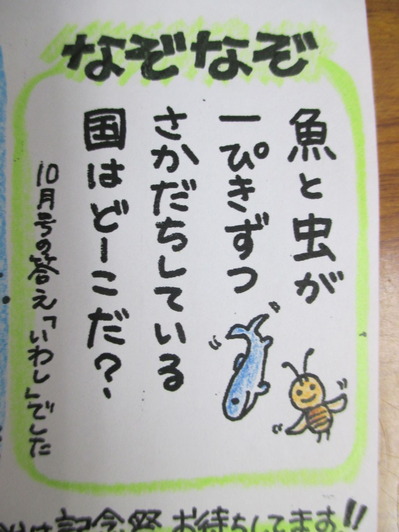 なぞなぞ
魚と虫が
一ぴきずつ
さかだちしている
国はどーこだ？
10月号の答え「いわし」でした
記念祭お待ちしてます!!